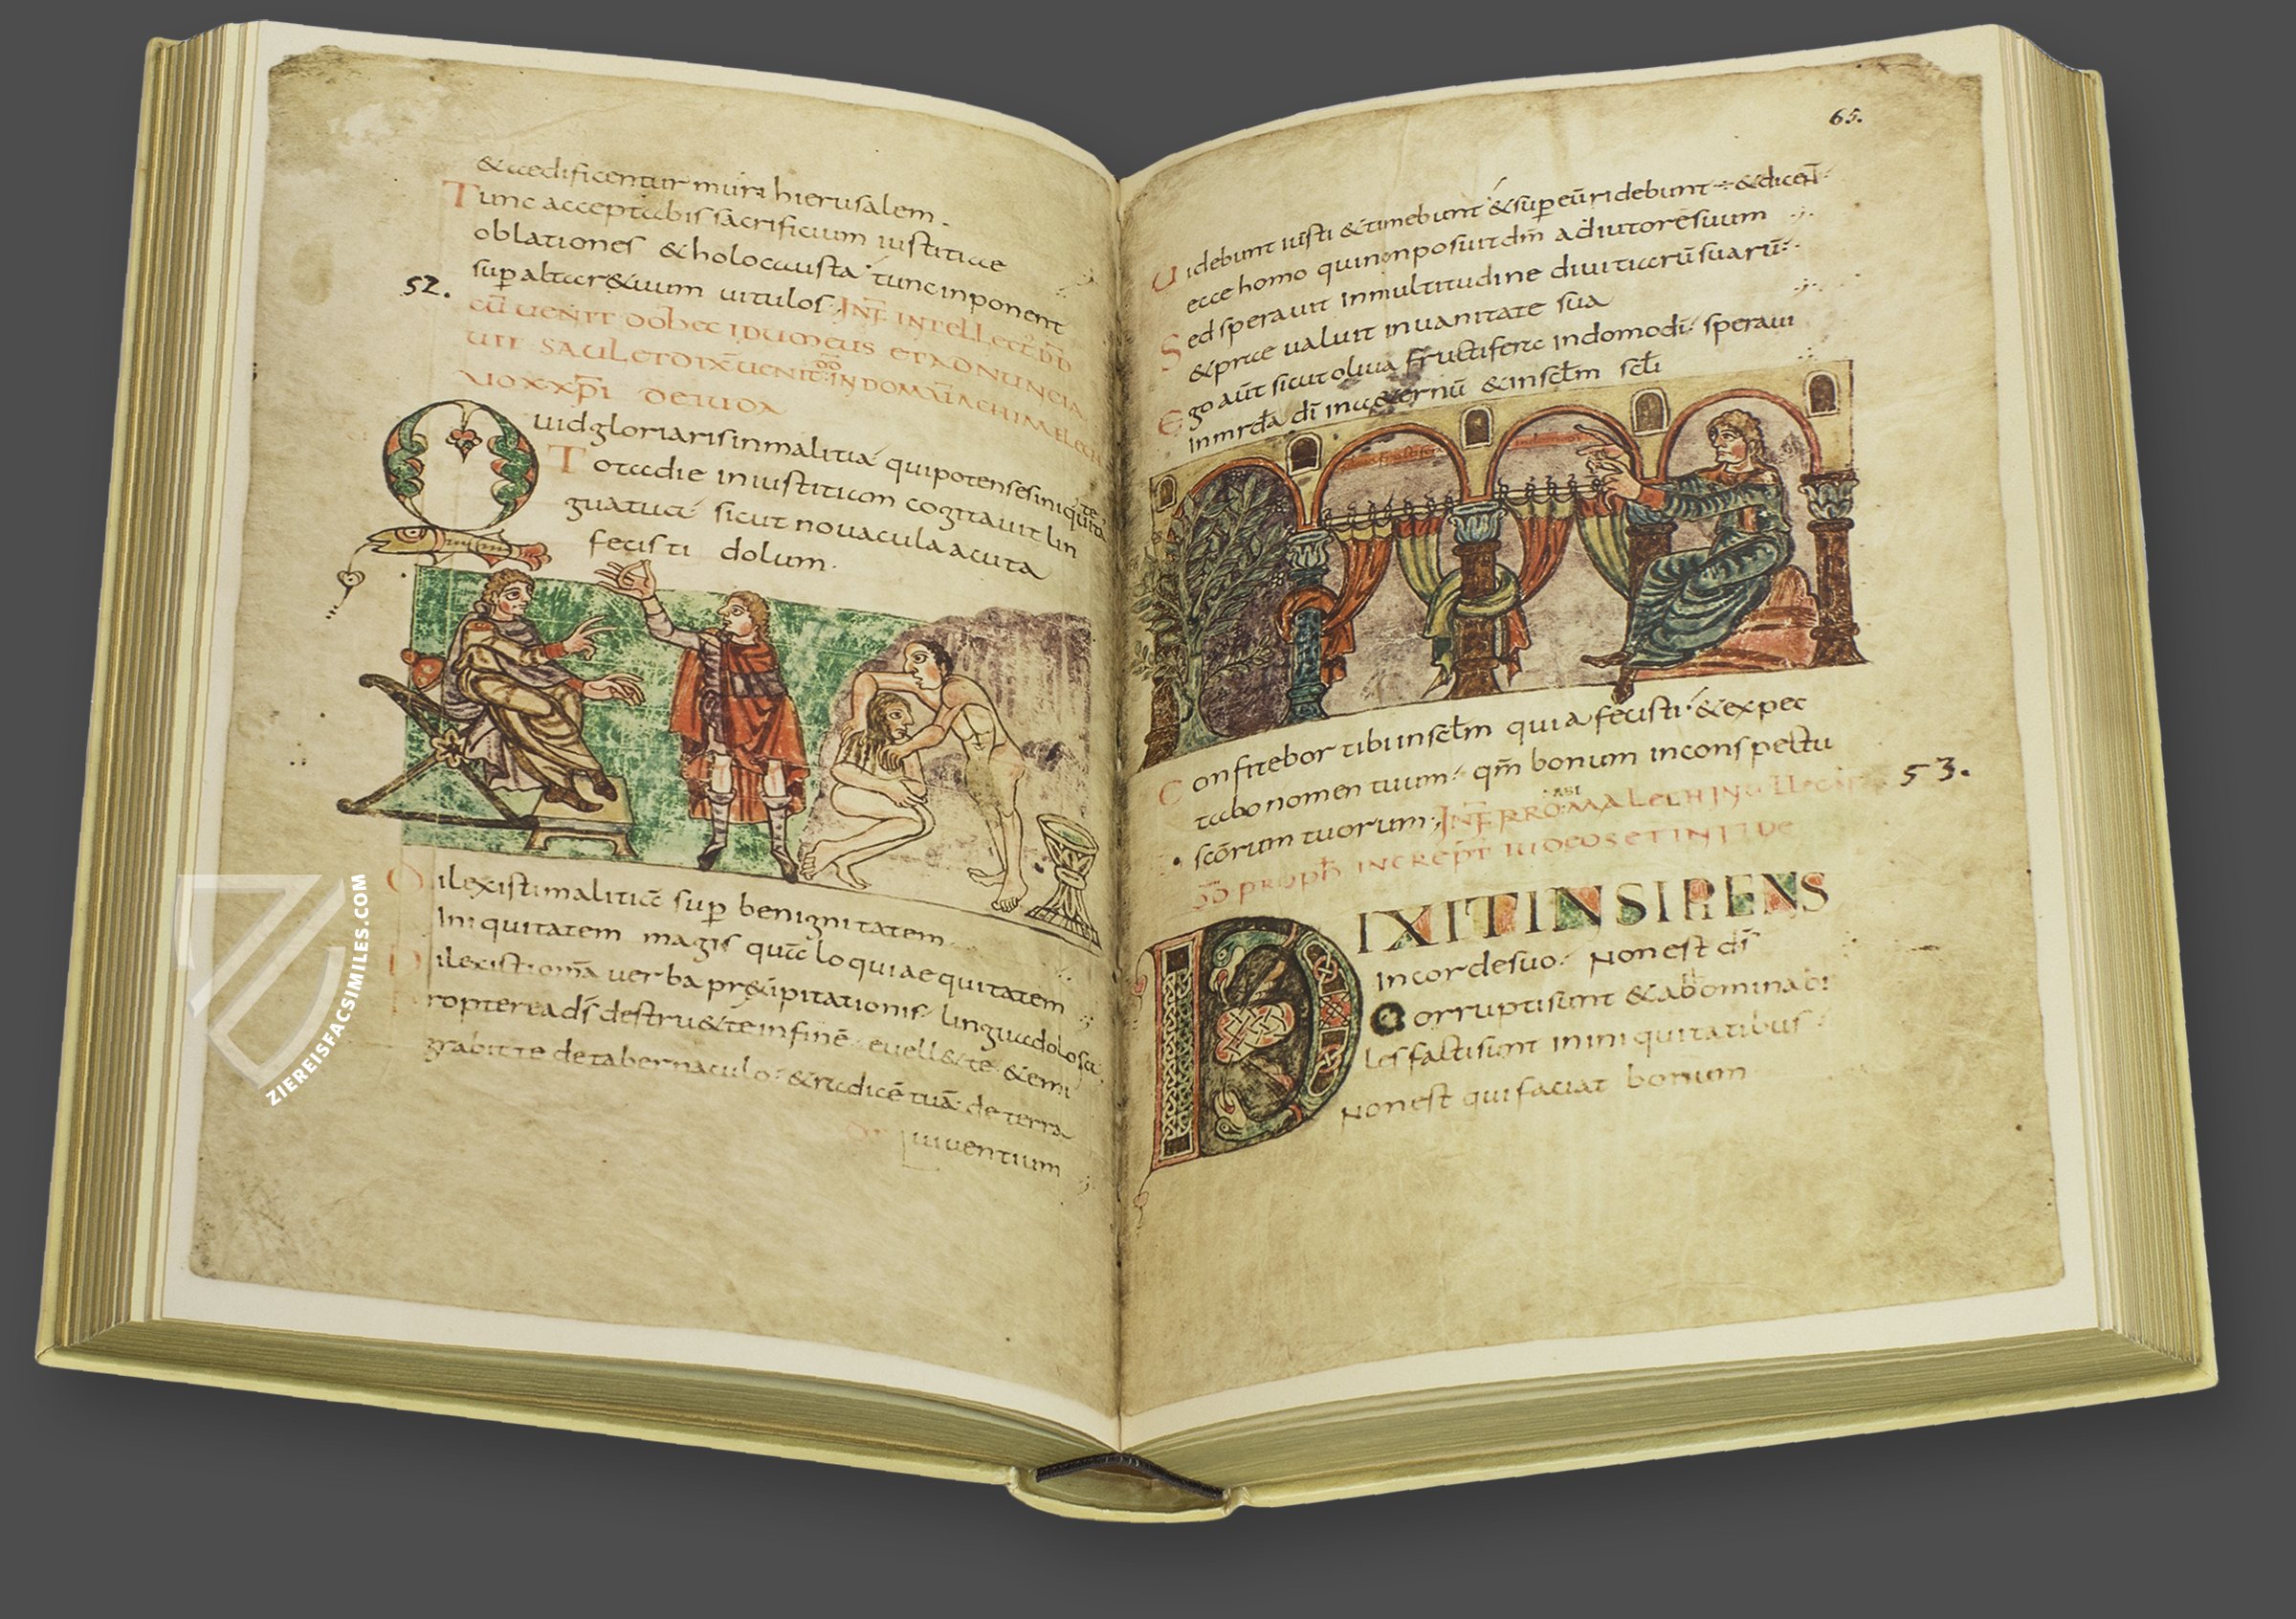 &aedificentur muri hierusalem.
Tunc acceptabis sacrificium iustitiae
oblationes &holocausta tunc inponent
sup altar& uum uitulos. INF INTELLECT DD
52.
CU UENIT DOHEC IDUMEUS ET ADNUNCIA
UIT SAUL ET DIX UENIT DD IN DOMA ACHIMELECH
UOX XPI DE IUDA
Quid gloriaris in malitia qui potens es iniquitate
Tota die iniustitiam cogitauit lin
gua tua sicut nouacula acuta
fecisti dolum.
Dilexisti malitia sup benignitatem
Iniquitatem magis qua loqui aequitatem
Dilexisti oma uerba pr&ipitationis lingua dolosa
Propterea ds destru& te in fine euell& te & emi
grabit te de tabernaculo & radice tua de terra
uiuentium
65.
Uidebunt iusti & timebunt & sup eu ridebunt & dicen
ecce homo qui non posuit dm adiutore suum
Sed sperauit in multitudine diuitiaru suaru
& praeualuit in uanitate sua
Ego aut sicut oliua fructifera in domo di speraui
In mrda di in a&ernu & in sclm scli
Confitebor tibi in sclm quia fecisti & expec
tabo nomen tuum qm bonum in conspectu
scorum tuorum. INF PRO MALECH INTELLECT
53.
DD PROPH INCREPT IUDEOS ET INFIDE
DIXIT INSIPENS
In corde suo. Non est ds
Corrupti sunt & abhominabi
les facti sunt in iniquitatibus
Non est qui faciat bonum
ZIEREISFACSIMILES.COM